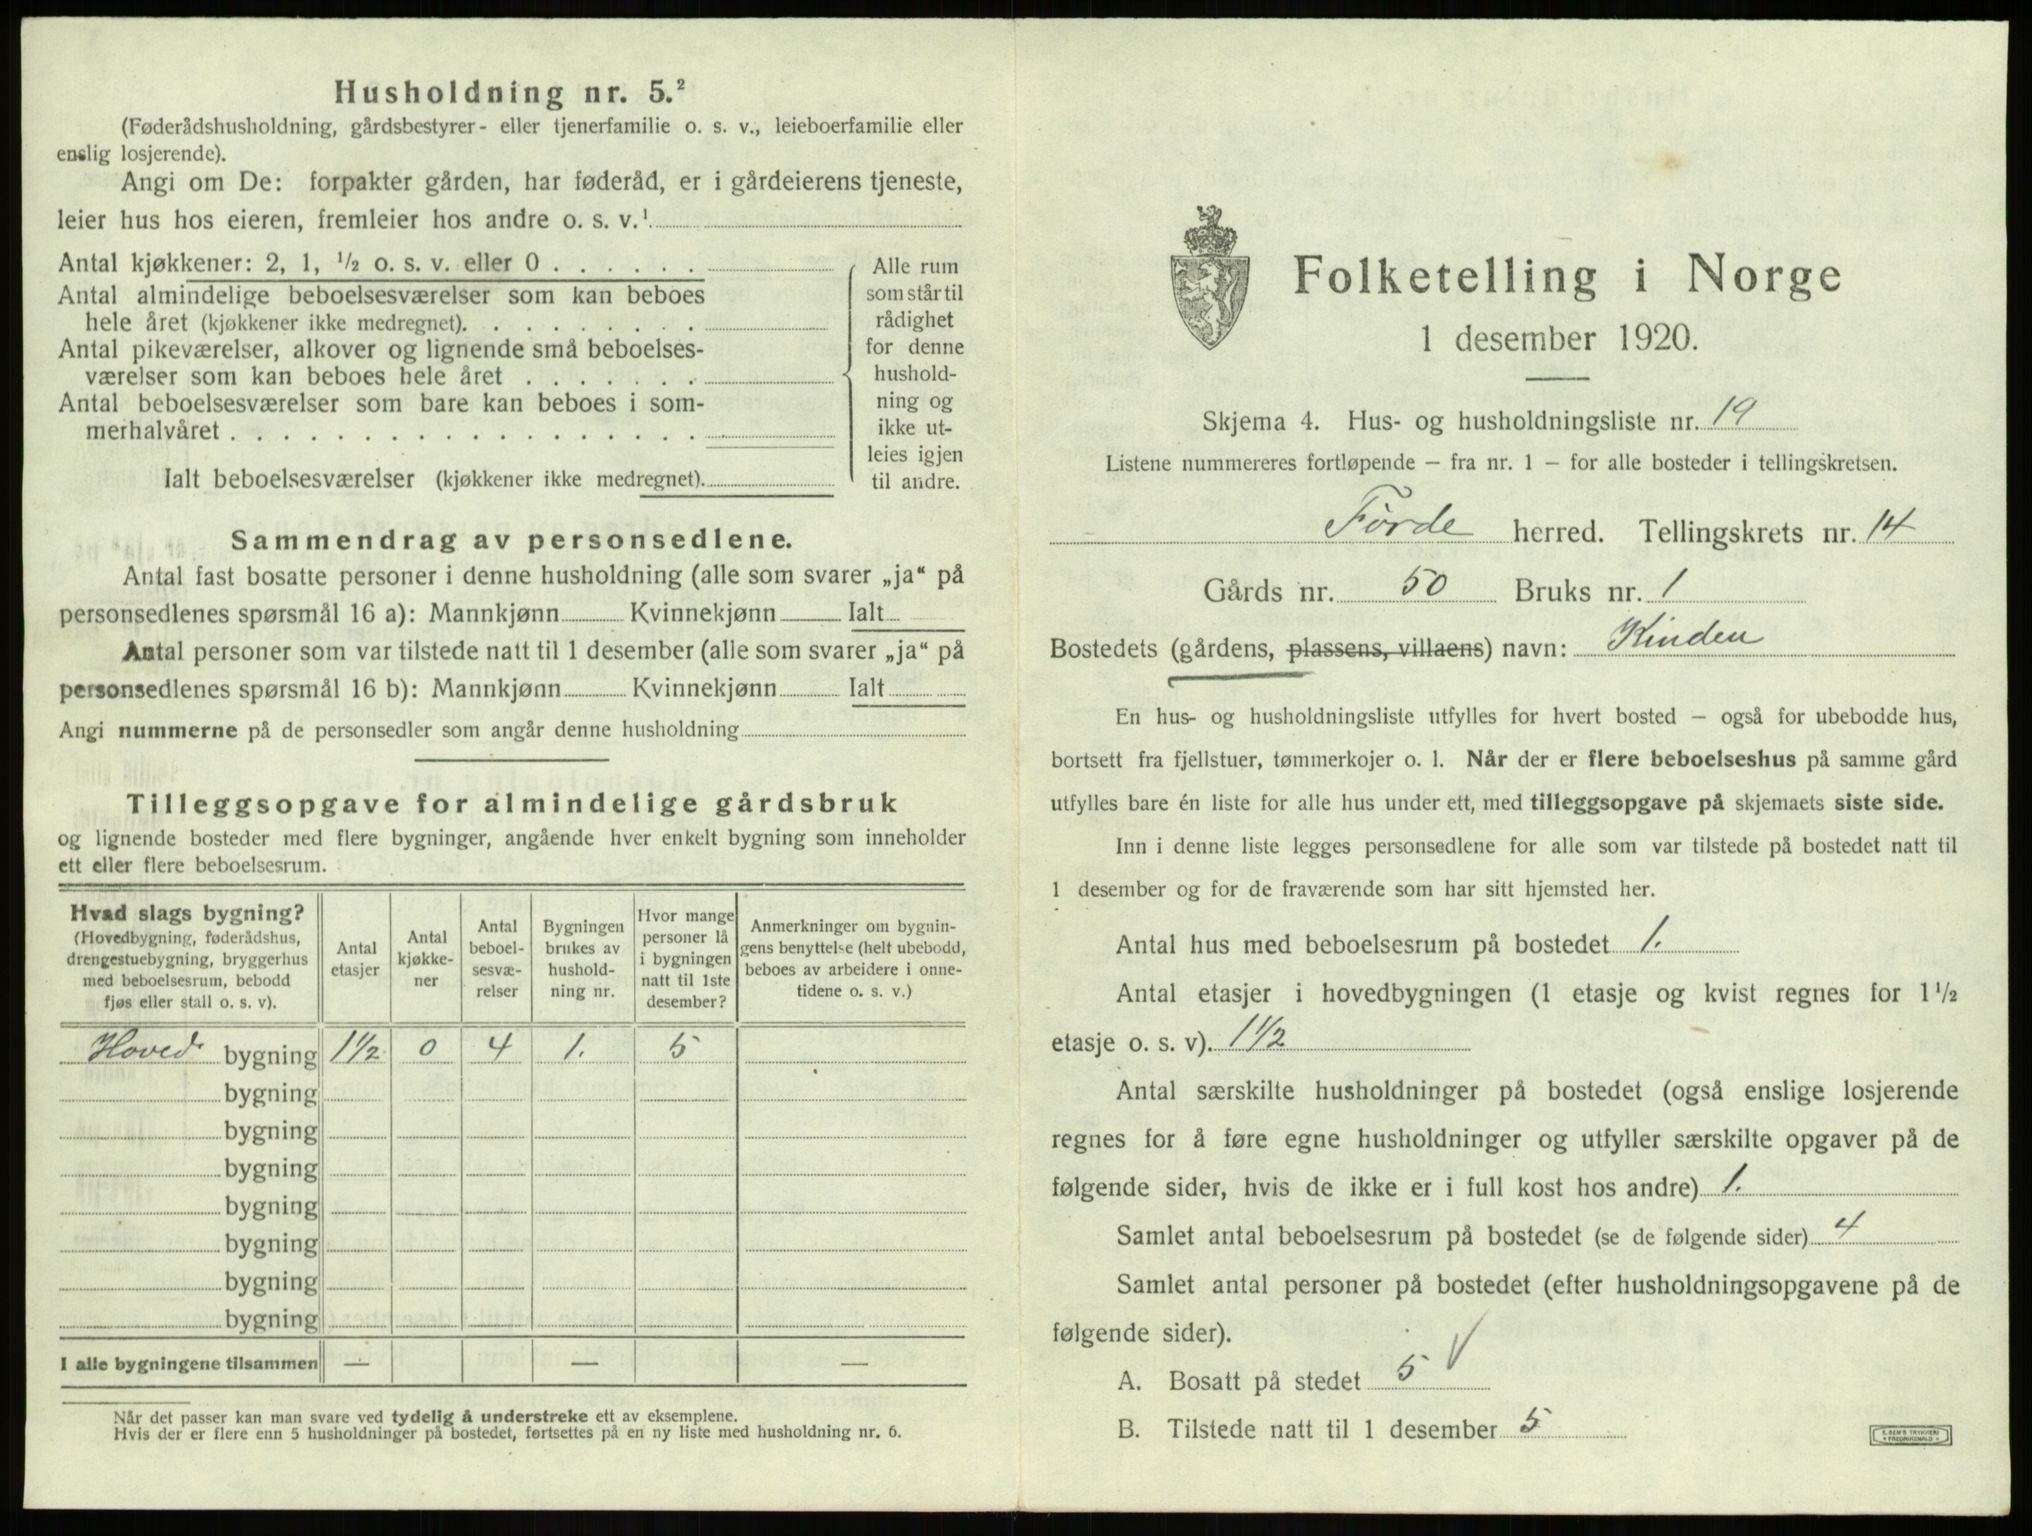 Husholdning nr. 5.²
(Føderådshusholdning, gårdsbestyrer- eller tjenerfamilie o. s. v., leieboerfamilie eller
enslig losjerende).
Angi om De: forpakter gården, har føderåd, er i gårdeierens tjeneste,
leier hus hos eieren, fremleier hos andre o. s. v.¹
Antal kjøkkener: 2, 1, ½ o. s. v. eller 0
Antal almindelige beboelsesværelser som kan beboes
hele året (kjøkkener ikke medregnet).
Antal pikeværelser, alkover og lignende små beboelses-
værelser som kan beboes hele året
Antal beboelsesværelser som bare kan beboes i som-
merhalvåret
Ialt beboelsesværelser (kjøkkener ikke medregnet).
Alle rum
som står til
rådighet
for denne
hushold-
ning og
ikke ut-
leies igjen
til andre.
Sammendrag av personsedlene.
Antal fast bosatte personer i denne husholdning (alle som svarer „ja“ på
personsedlenes spørsmål 16 a): Mannkjønn Kvinnekjønn Ialt
Antal personer som var tilstede natt til 1 desember (alle som svarer „ja“ på
personsedlenes spørsmål 16 b): Mannkjønn Kvinnekjønn Ialt
Angi nummerne på de personsedler som angår denne husholdning
Tilleggsopgave for almindelige gårdsbruk
og lignende bosteder med flere bygninger, angående hver enkelt bygning som inneholder
ett eller flere beboelsesrum.
Hvad slags bygning?
(Hovedbygning, føderådshus,
drengestuebygning, bryggerhus
med beboelsesrum, bebodd
fjøs eller stall o. s. v).
Antal
etasjer
Antal
kjøkke-
ner
Antal
beboel-
sesvæ-
relser
Bygningen
brukes av
hushold-
ning nr.
Hvor mange
personer lå
i bygningen
natt til 1ste
desember?
Anmerkninger om bygnin-
gens benyttelse (helt ubebodd,
beboes av arbeidere i onne-
tidene o. s. v.)
Hoved bygning 1½ 0 4 1. 5
bygning
bygning
bygning
bygning
bygning
bygning
bygning
I alle bygningene tilsammen — — —
Når det passer kan man svare ved tydelig å understreke ett av eksemplene.
Hvis der er flere enn 5 husholdninger på bostedet, fortsettes på en ny liste med husholdning nr. 6.
Folketelling i Norge
1 desember 1920.
Skjema 4. Hus- og husholdningsliste nr. 19
Listene nummereres fortløpende – fra nr. 1 – for alle bosteder i tellingskretsen.
Førde herred. Tellingskrets nr. 14
Gårds nr. 50 Bruks nr. 1
Bostedets (gårdens, plassens, villaens) navn: Kinden
En hus- og husholdningsliste utfylles for hvert bosted – også for ubebodde hus,
bortsett fra fjellstuer, tømmerkojer o. l. Når der er flere beboelseshus på samme gård
utfylles bare én liste for alle hus under ett, med tilleggsopgave på skjemaets siste side.
Inn i denne liste legges personsedlene for alle som var tilstede på bostedet natt til
1 desember og for de fraværende som har sitt hjemsted her.
Antal hus med beboelsesrum på bostedet 1.
Antal etasjer i hovedbygningen (1 etasje og kvist regnes for 1½
etasje o. s. v). 1½
Antal særskilte husholdninger på bostedet (også enslige losjerende
regnes for å føre egne husholdninger og utfyller særskilte opgaver på de
følgende sider, hvis de ikke er i full kost hos andre) 1.
Samlet antal beboelsesrum på bostedet (se de følgende sider) 4
Samlet antal personer på bostedet (efter husholdningsopgavene på de
følgende sider).
A. Bosatt på stedet 5 √
B. Tilstede natt til 1 desember 5